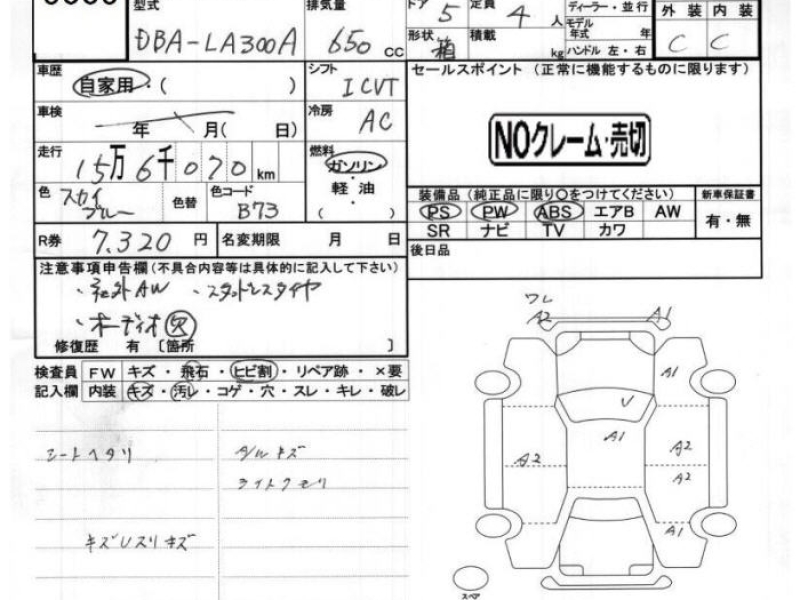 型式 DBA-LA300A
排気量 650 cc
ドア 5 定員 4 人
ディーラー・並行
モデル年式 年
形状 箱 積載 kg
ハンドル 左・右
外装 内装
C C
車歴 自家用・( )
シフト I CVT
車検 年 月( 日)
冷房 AC
走行 15万6千070km
燃料 ガソリン・軽油・( )
色 スカイブルー 色替 色コード B73
R券 7.320 円 名変期限 月 日
セールスポイント (正常に機能するものに限ります)
NOクレーム・売切
装備品 (純正品に限り○をつけてください) 新車保証書
PS PW ABS エアB AW 有・無
SR ナビ TV カワ
後日品
注意事項申告欄(不具合内容等は具体的に記入して下さい)
・社外AW ・スタットレスタイヤ
・オーディオ穴
修復歴 有 〔箇所 〕
検査員 FW キズ・飛石・ヒビ割・リペア跡・×要
記入欄 内装 キズ・汚レ・コゲ・穴・スレ・キレ・破レ
シートヘタリ
A/Wキズ
ライトクモリ
キズUスリキズ
ワレ
A2
A1
A1
V
A1
A2
A2
A2
A1
スペア